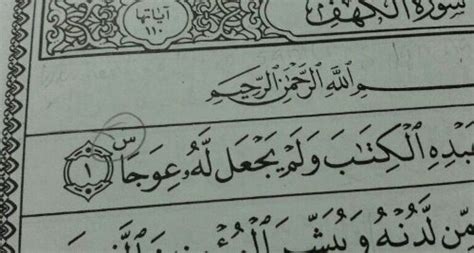 سُورَةُ الكَهْفِ
آيَاتُهَا ١١٠
ـمِ اللَّهِ الرَّحْمَٰنِ الرَّحِيمِ
ـبْدِهِ الْكِتَٰبَ وَلَمْ يَجْعَل لَّهُۥ عِوَجَاۜ ١
مِّن لَّدُنْهُ وَيُبَشِّرَ